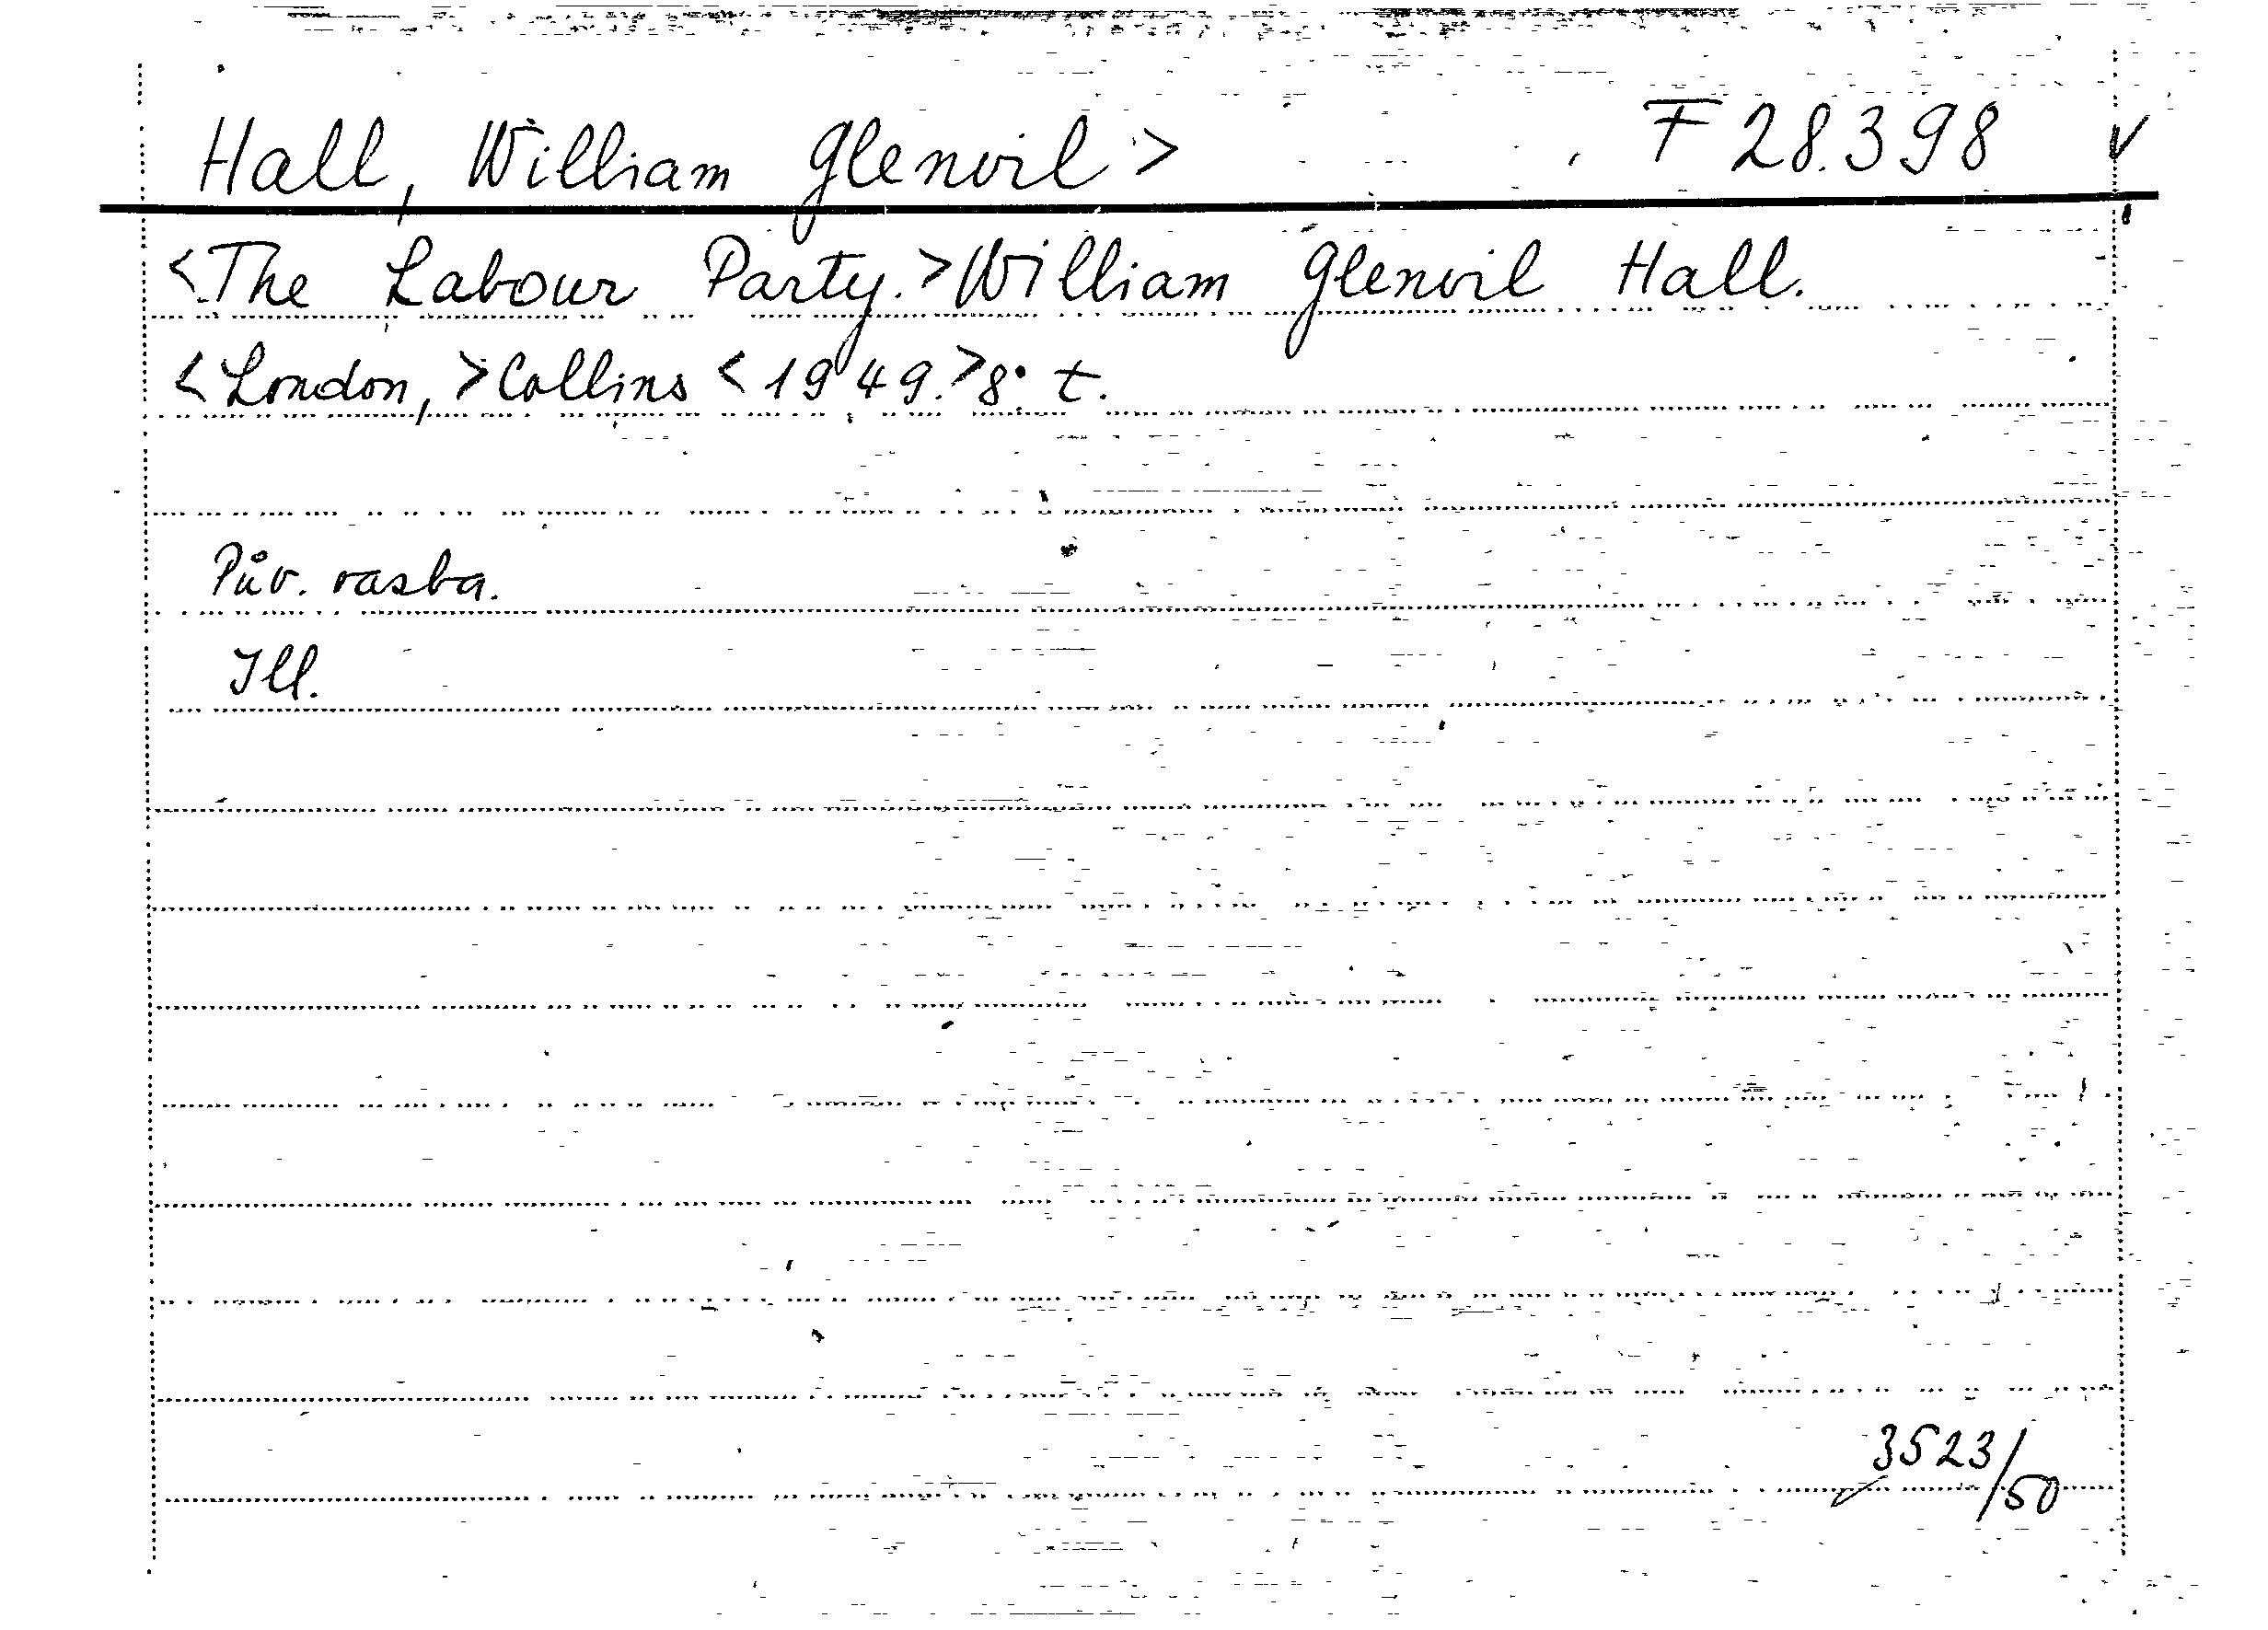 Hall, William Glenvil > F 28.398 v
<The Labour Party.>William Glenvil Hall.
<London,>Collins<1949.>8° t.
Pův. vasba.
Ill.
3523/50